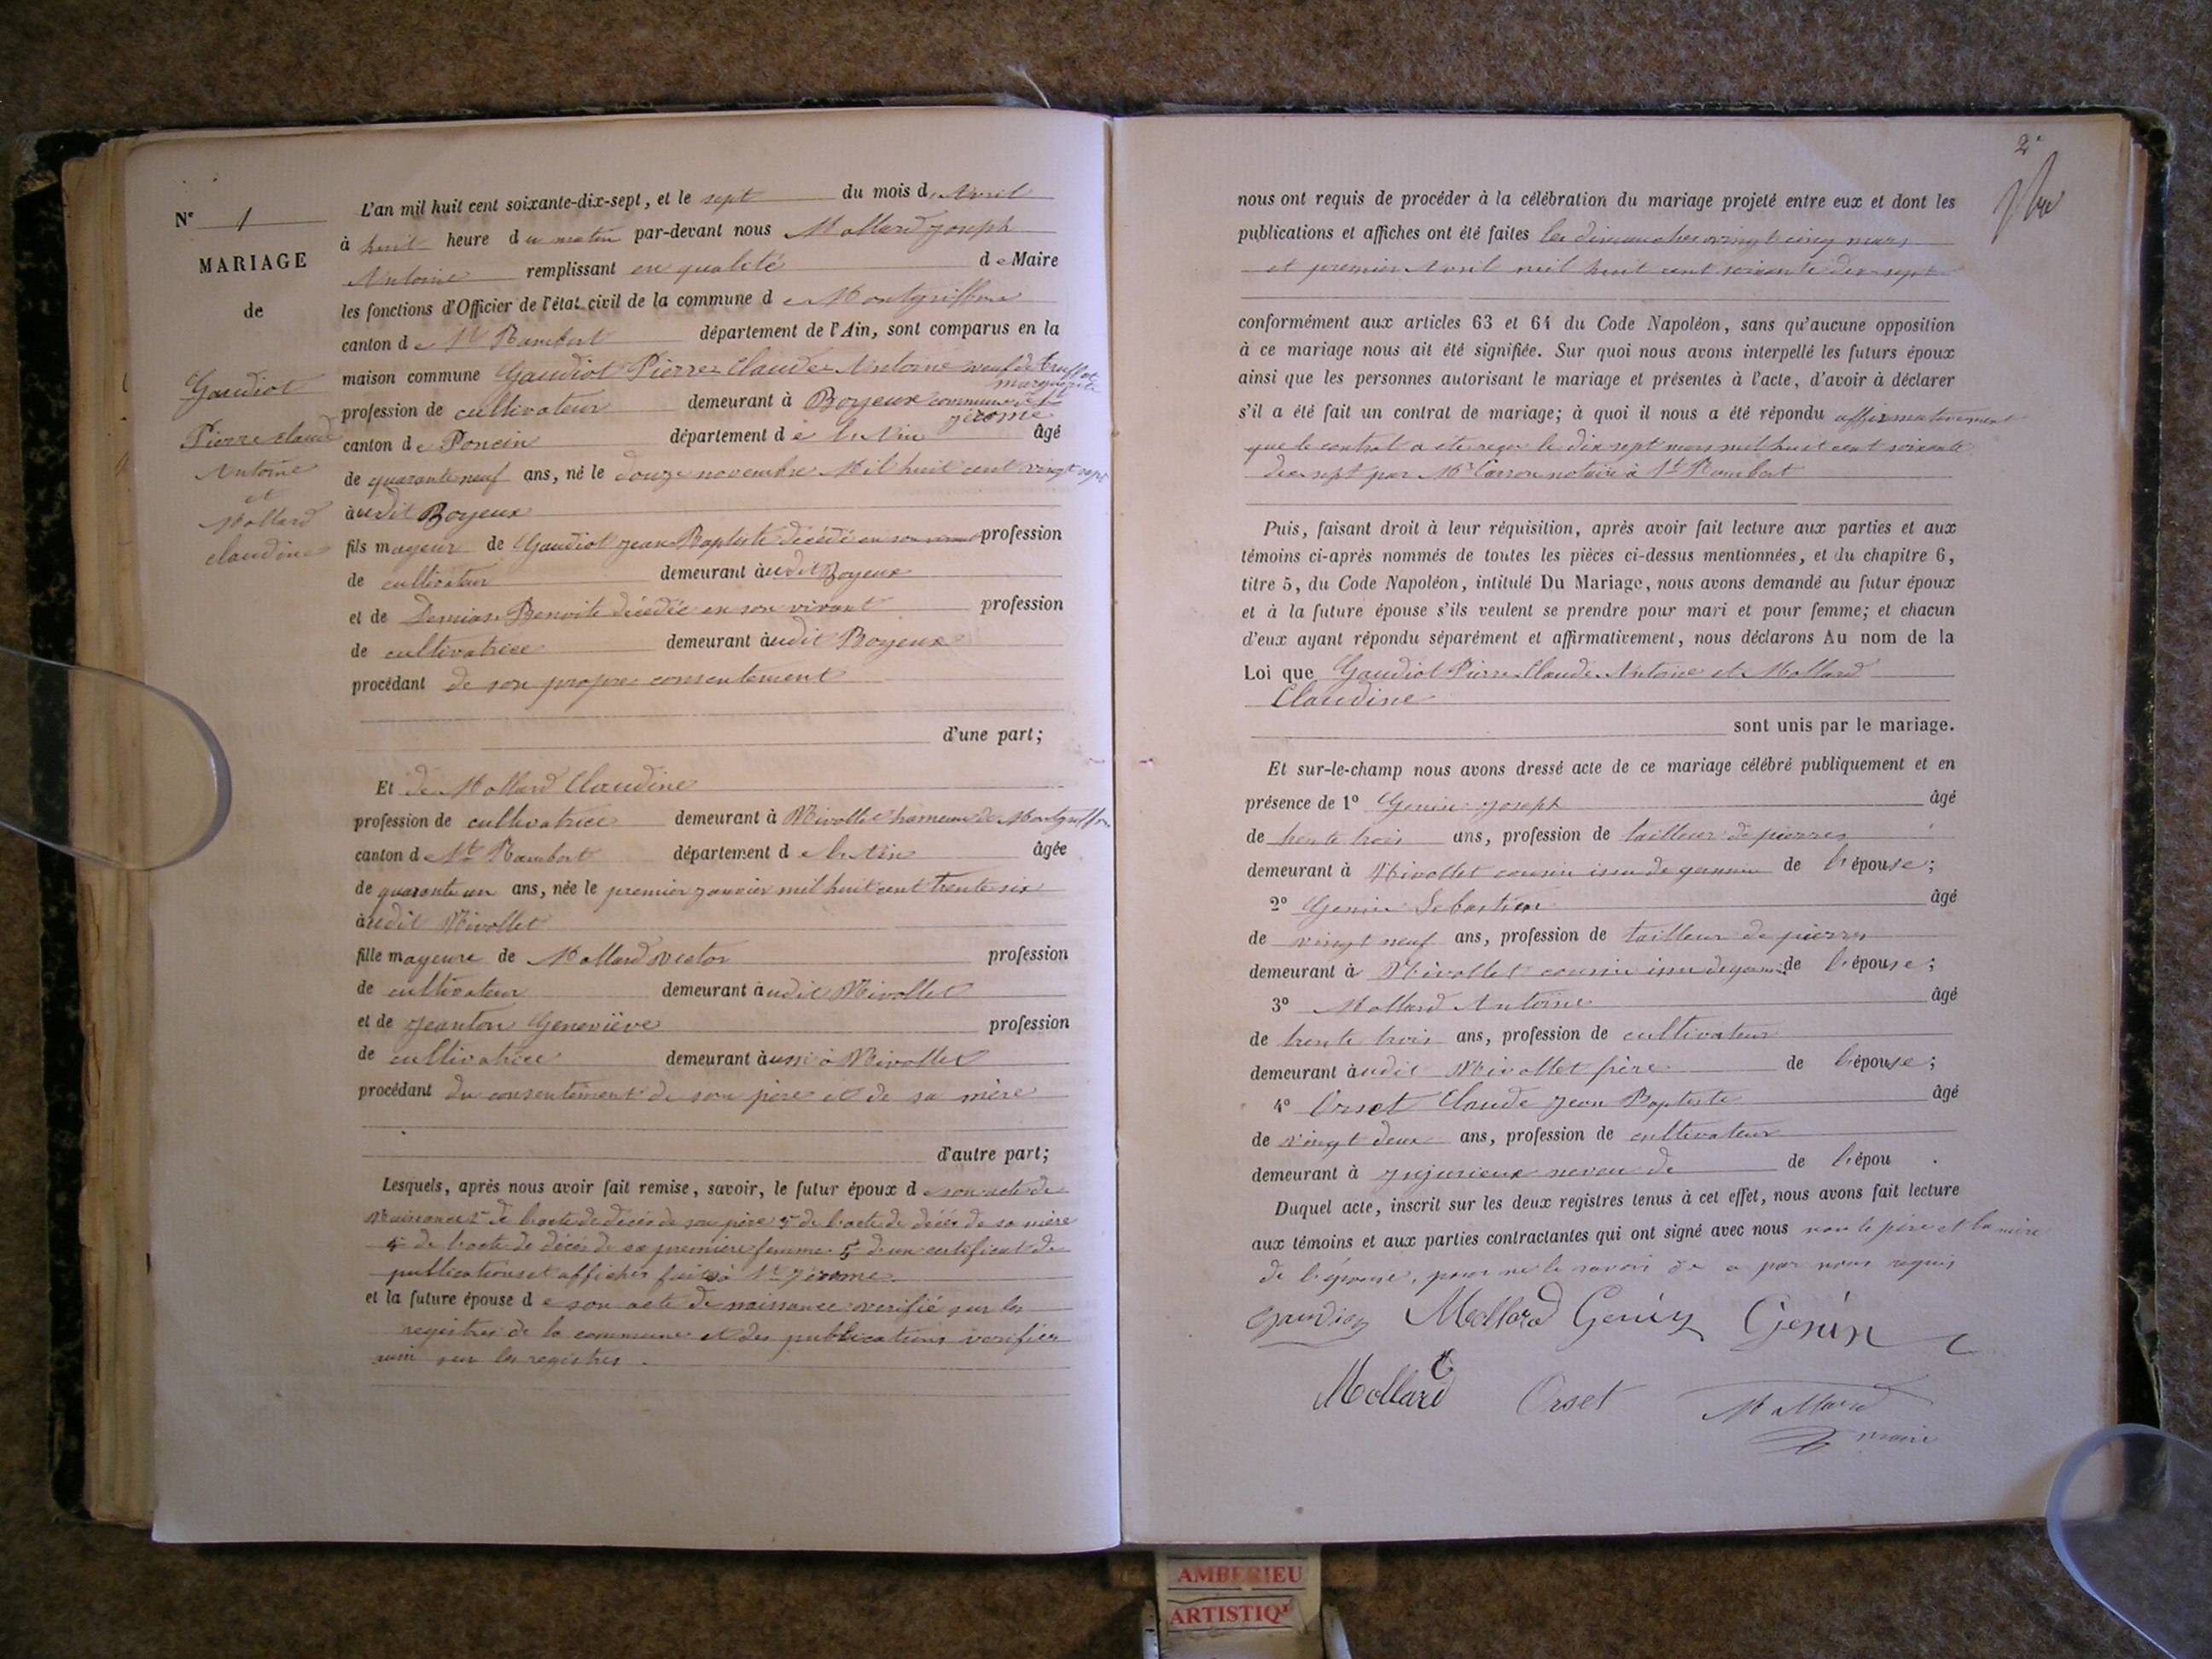 N° 1
MARIAGE
de
Gaudiot
Pierre Claude
Antoine
et
Mollard
Claudine
L'an mil huit cent soixante-dix-sept, et le sept du mois d'Avril
à huit heure du matin par-devant nous Mollard Joseph
Antoine remplissant en qualité de Maire
les fonctions d'Officier de l'état civil de la commune de Montgriffon
canton de St Rambert département de l'Ain, sont comparus en la
maison commune Gaudiot Pierre Claude Antoine veuf de
marguerite
profession de cultivateur demeurant à Boyeux commune de St
Jérome
canton de Poncin département de l'Ain âgé
de quarante neuf ans, né le douze novembre Mil huit cent vingt sept
àudit Boyeux
fils mayeur de Gaudiot Jean Baptiste décédé en son vivant profession
de cultivateur demeurant àudit Boyeux
et de Benoite décédée en son vivant profession
de cultivatrice demeurant àudit Boyeux
procédant de son propre consentement
d'une part;
Et de Mollard Claudine
profession de cultivatrice demeurant à Nivollet hameau de Montgriffon
canton de St Rambert département de l'Ain âgée
de quarante un ans, née le premier janvier mil huit cent trente six
àudit Nivollet
fille mayeure de Mollard Victor profession
de cultivateur demeurant àudit Nivollet
et de Jeanton Geneviève profession
de cultivatrice demeurant àussi à Nivollet
procédant du consentement de son père et de sa mère
d'autre part;
Lesquels, après nous avoir fait remise, savoir, le futur époux de son acte de
Naissance 2° de l'acte de décès de son père 3° de l'acte de décès de sa mère
4° de l'acte de décès de sa première femme 5° d'un certificat de
publications et affiches faites à St Jérome
et la future épouse de son acte de naissance verifié sur les
registres de la commune et des publications verifiées
aussi sur les registres.
2e
nous ont requis de procéder à la célébration du mariage projeté entre eux et dont les
publications et affiches ont été faites les dimanches vingt cinq mars
et premier Avril mil huit cent soixante dix sept
conformément aux articles 63 et 64 du Code Napoléon, sans qu'aucune opposition
à ce mariage nous ait été signifiée. Sur quoi nous avons interpellé les futurs époux
ainsi que les personnes autorisant le mariage et présentes à l'acte, d'avoir à déclarer
s'il a été fait un contrat de mariage; à quoi il nous a été répondu affirmativement
que le contrat a été reçu le dix sept mars mil huit cent soixante
dix sept par Me notaire à St Rambert
Puis, faisant droit à leur réquisition, après avoir fait lecture aux parties et aux
témoins ci-après nommés de toutes les pièces ci-dessus mentionnées, et du chapitre 6,
titre 5, du Code Napoléon, intitulé Du Mariage, nous avons demandé au futur époux
et à la future épouse s'ils veulent se prendre pour mari et pour femme; et chacun
d'eux ayant répondu séparément et affirmativement, nous déclarons Au nom de la
Loi que Gaudiot Pierre Claude Antoine et Mollard
Claudine
sont unis par le mariage.
Et sur-le-champ nous avons dressé acte de ce mariage célébré publiquement et en
présence de 1° Genin Joseph âgé
de trente trois ans, profession de tailleur de pierres
demeurant à Nivollet cousin issu de germain de l'épouse;
2° Genin Sebastien âgé
de vingt neuf ans, profession de tailleur de pierres
demeurant à Nivollet cousin issu de germain de l'épouse;
3° Mollard Antoine âgé
de trente trois ans, profession de cultivateur
demeurant àudit Nivollet frère de l'épouse;
4° Orset Claude Jean Baptiste âgé
de vingt deux ans, profession de cultivateur
demeurant à Jujurieux neveu de de l'épou .
Duquel acte, inscrit sur les deux registres tenus à cet effet, nous avons fait lecture
aux témoins et aux parties contractantes qui ont signé avec nous non le père et la mère
de l'épouse, pour ne le savoir de ce par nous requis
Gaudiot Mollard Genin Genin
Mollard Orset Mollard
maire
AMBERIEU
ARTISTIQ